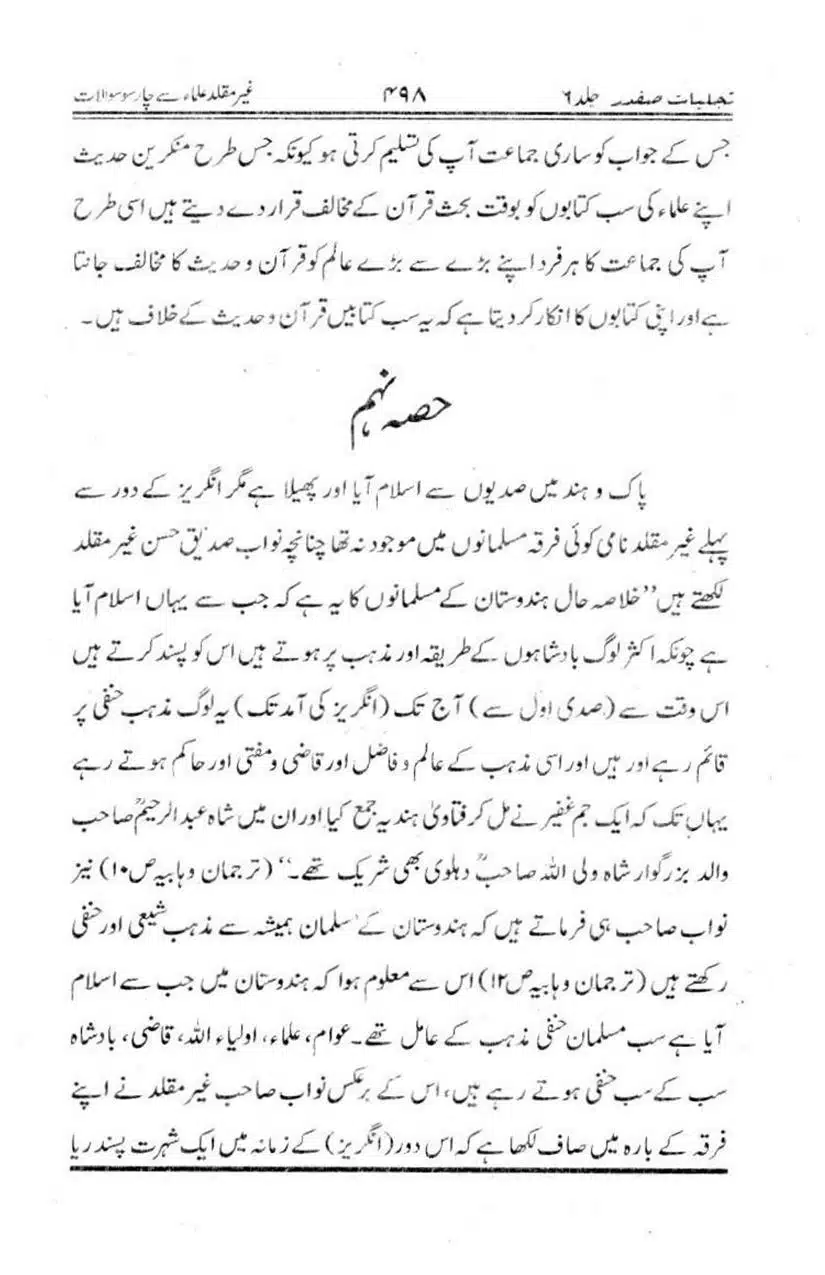 تجلیات صفدر جلد ۶ ۴۹۸ غیر مقلد علماء سے چار سو سوالات
جس کے جواب کو ساری جماعت آپ کی تسلیم کرتی ہو کیونکہ جس طرح منکرین حدیث
اپنے علماء کی سب کتابوں کو بوقت بحث قرآن کے مخالف قرار دے دیتے ہیں اسی طرح
آپ کی جماعت کا ہر فرد اپنے بڑے سے بڑے عالم کو قرآن و حدیث کا مخالف جانتا
ہے اور اپنی کتابوں کا انکار کر دیتا ہے کہ یہ سب کتابیں قرآن و حدیث کے خلاف ہیں۔
حصہ نہم
پاک و ہند میں صدیوں سے اسلام آیا اور پھیلا ہے مگر انگریز کے دور سے
پہلے غیر مقلد نامی کوئی فرقہ مسلمانوں میں موجود نہ تھا چنانچہ نواب صدیق حسن غیر مقلد
لکھتے ہیں ”خلاصہ حال ہندوستان کے مسلمانوں کا یہ ہے کہ جب سے یہاں اسلام آیا
ہے چونکہ اکثر لوگ بادشاہوں کے طریقہ اور مذہب پر ہوتے ہیں اس کو پسند کرتے ہیں
اس وقت سے (صدی اول سے) آج تک (انگریز کی آمد تک) یہ لوگ مذہب حنفی پر
قائم رہے اور ہیں اور اسی مذہب کے عالم و فاضل اور قاضی و مفتی اور حاکم ہوتے رہے
یہاں تک کہ ایک جم غفیر نے مل کر فتاویٰ ہندیہ جمع کیا اور ان میں شاہ عبد الرحیمؒ صاحب
والد بزرگوار شاہ ولی اللہ صاحبؒ دہلوی بھی شریک تھے۔“ (ترجمان وہابیہ ص۱۰) نیز
نواب صاحب ہی فرماتے ہیں کہ ہندوستان کے مسلمان ہمیشہ سے مذہب شیعی اور حنفی
رکھتے ہیں (ترجمان وہابیہ ص۱۲) اس سے معلوم ہوا کہ ہندوستان میں جب سے اسلام
آیا ہے سب مسلمان حنفی مذہب کے عامل تھے۔ عوام، علماء، اولیاء اللہ، قاضی، بادشاہ
سب کے سب حنفی ہوتے رہے ہیں، اس کے برعکس نواب صاحب غیر مقلد نے اپنے
فرقہ کے بارہ میں صاف لکھا ہے کہ اس دور (انگریز) کے زمانہ میں ایک شہرت پسند ریا